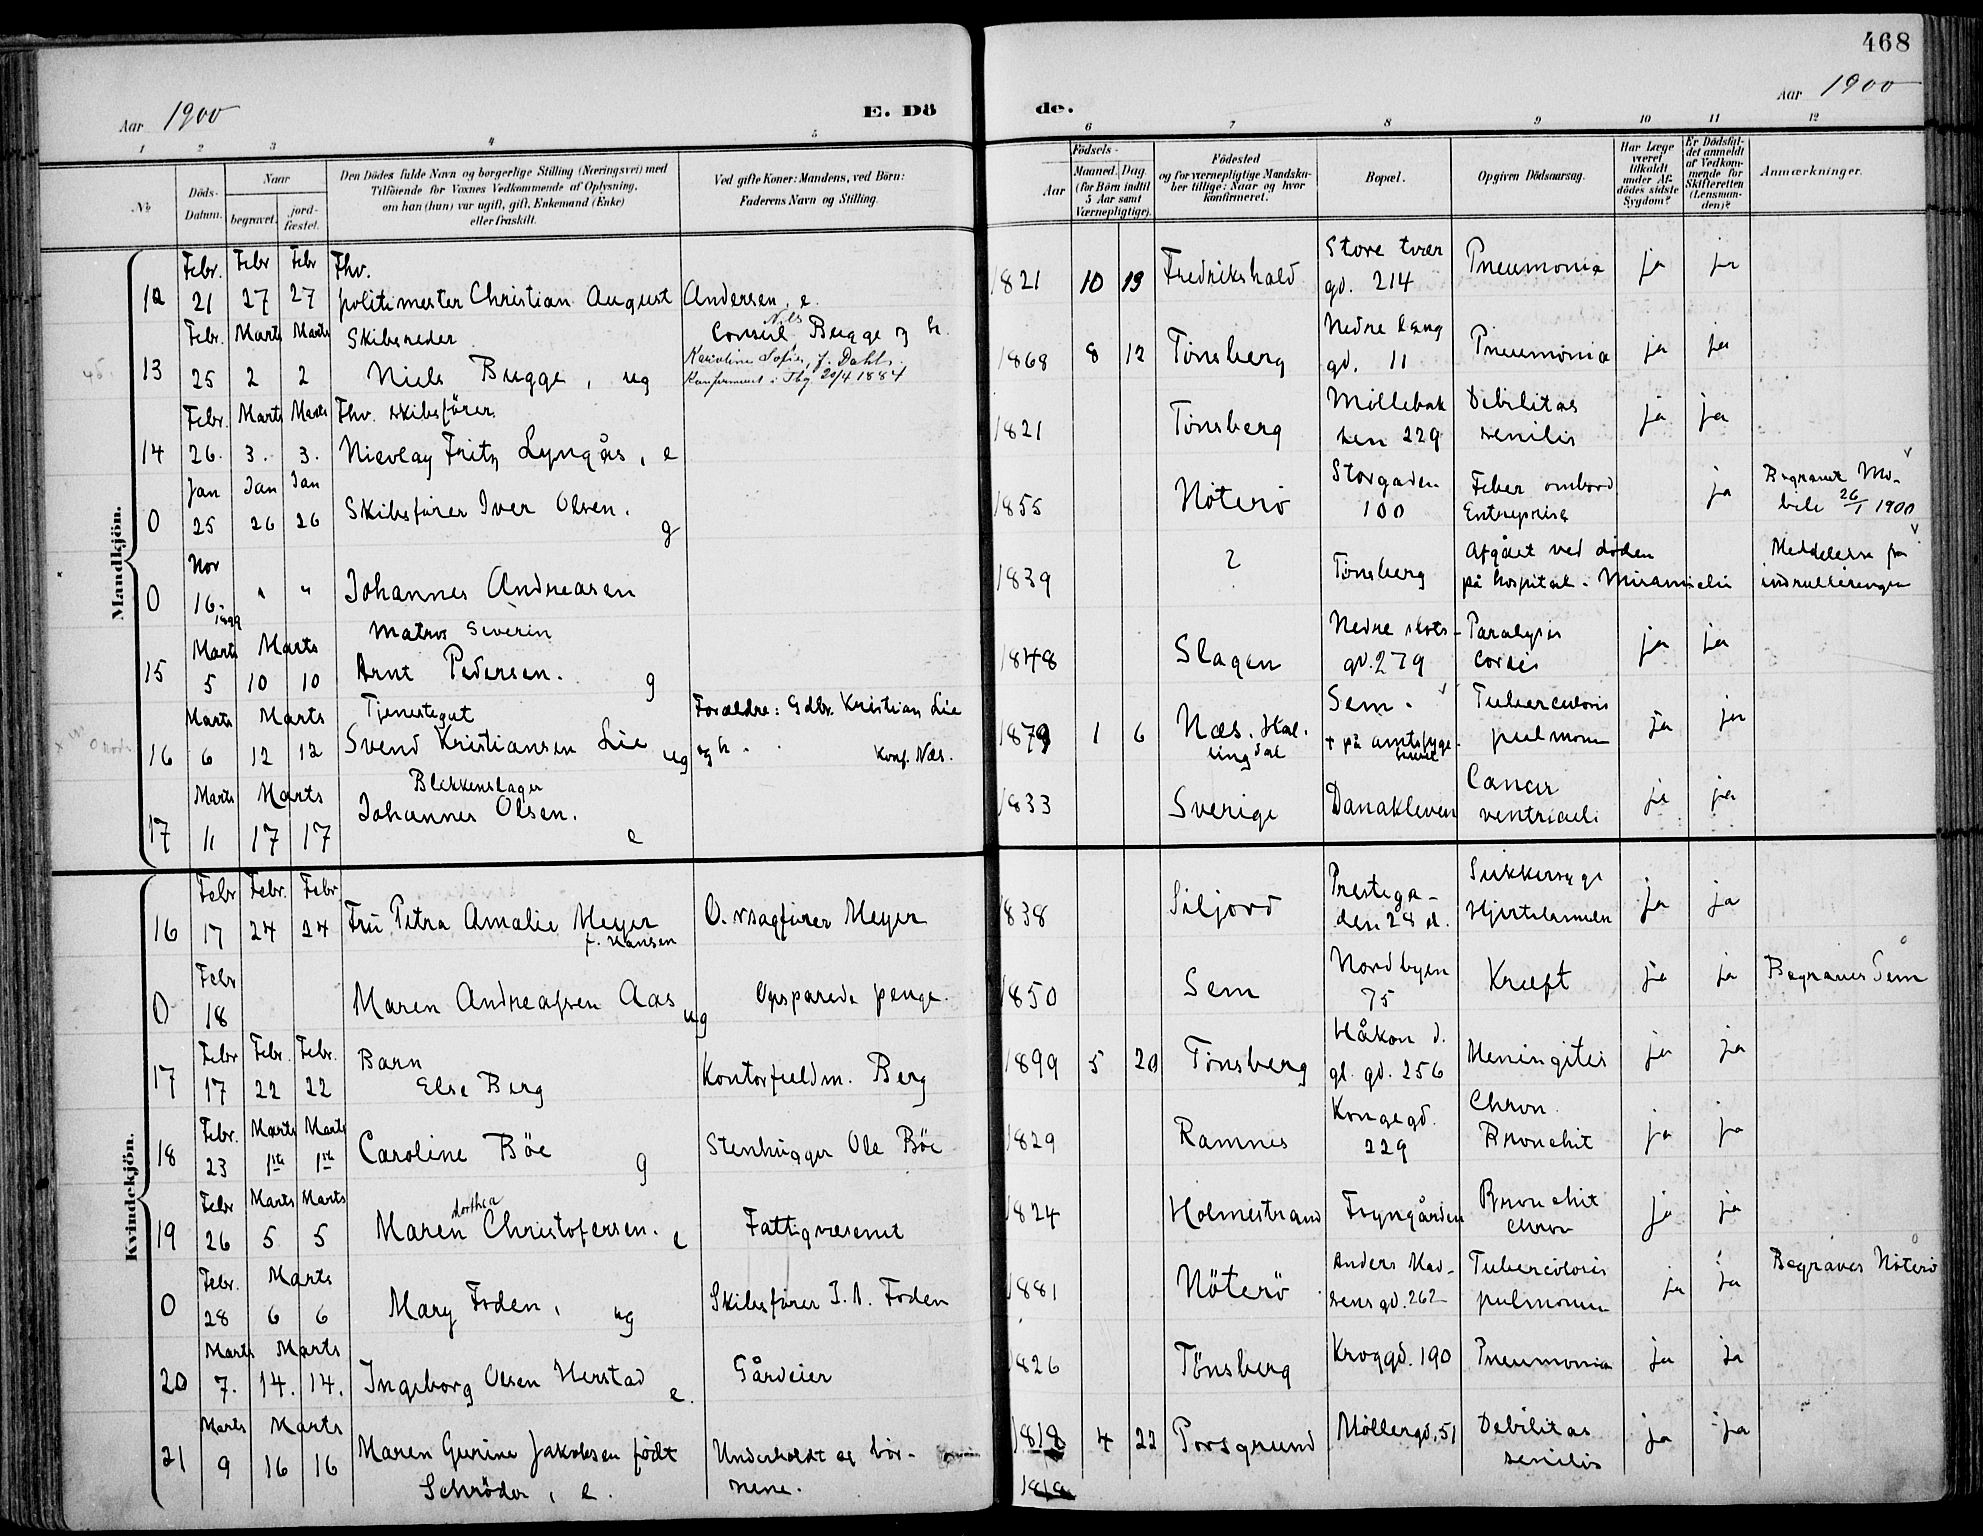 468
Aar 1900
E. Dö
de.
Aar 1900
1 2 3 4 5 6 7 8 9 10 11 12
No
Döds-Datum.
Naar
begravet.
jord-fæstet.
Den Dödes fulde Navn og borgerlige Stilling (Næringsvei) med
Tilföiende for Voxnes Vedkommende af Oplysning,
om han (hun) var ugift, gift, Enkemand (Enke)
eller fraskilt.
Ved gifte Koner: Mandens, ved Börn:
Faderens Navn og Stilling.
Födsels-
Aar
Maaned. Dag.
(for Börn indtil
5 Aar samt
Værnepligtige).
Födested
og for værnepligtige Mandska-
ber tillige: Naar og hvor
konfirmeret.
Bopæl.
Opgiven Dödsaarsag.
Har Læge
været
tilkaldt
under Af-
dödes sidste
Sygdom?
Er Dödsfal-
det anmeldt
af Vedkom-
mende for
Skifteretten
(Lensman-
den)?
Anmærkninger.
Mandkjön.
Febr. Febr Febr Thv. Store tvær Pneumonia ja ja
12 21 27 27 politimester Christian August Andersen, e. 1821 10 13 Fredrikshald gd. 214
Febr. Marts Marts Skibsreder Consul Nils Bugge og h. Nedre lang
Karoline Sofie, f. Dahl.
13 25 2 2 Niels Bugge, ug Konfirmeret i Tbg 20/4 1884 1868 8 12 Tönsberg gd. 11 Pneumonia ja ja
Febr. Marts Marts Thv. skibsfører Möllebak Debilitas
14 26. 3. 3. Nicolay Fritz Lyngås, e 1821 Tönsberg ken 229 senilis ja ja
Jan Jan Jan Storgaden Feber ombord Begravet Mo-
0 25 26 26 Skibsfører Iver Olsen. g 1855 Nöterö 100 Entreprise ja bile 26/1 1900
Nov Afgået ved døden Meddelelse fra
0 16. 1899 " " Johannes Andreasen 1839 ? Tönsberg på hospital i Miramichi indrulleringen
Matros Severin Nedre slots- Paralysis
Marts Marts
15 5 10 10 Arnt Pedersen. g 1848 Slagen gd. 279 cordis ja ja
Marts Marts Tjenestegut Forældre: Gdbr. Kristian Lie Sem. Tuberculosis
16 6 12 12 Svend Kristiansen Lie ug og h. Konf. Næs. 1879 1 6 Næs. Hallingdal + på amtssygehuset pulmonum ja ja
Marts Marts Blikkenslager Cancer
17 11 17 17 Johannes Olsen. e 1833 Sverige Danakleven ventriculi ja ja
Kvindekjön.
Febr Febr. Febr. Prestega- Sukkersyge
16 17 24 24 Fru Petra Amalie Meyer f. Hansen O.rsagfører Meyer 1838 Siljord den 28 d. Hjertelammelse ja ja
Febr Nordbyen
0 18 Maren Andreassen Aas ug Opsparede penge. 1850 Sem 75 Kræft ja ja Begraves Sem
Febr Febr. Febr. Barn Håkon d.
17 17 22 22 Else Berg Kontorfuldm. Berg 1899 5 20 Tönsberg gl. gd. 256 Meningites ja ja
Febr. Marts Marts Kongegd. Chron.
18 23 1ste 1ste Caroline Böe g Stenhugger Ole Böe 1829 Ramnes 229 Bronchit ja ja
Febr Marts Marts dorthea Bronchit
19 26 5 5 Maren Christofersen. e Fattigvæsenet 1824 Holmestrand Fryngården chron ja ja
Febr. Marts Anders Mad- Tuberculosis
0 28 6 6 Mary Foden, ug Skibsfører I. A. Foden 1881 Nöterö sens gd. 262 pulmonum ja ja Begraves Nöterö
Marts Marts
20 7. 14. 14. Ingeborg Olsen Herstad e. Gårdeier 1826 Tönsberg Kroggd. 190 Pneumonia ja ja
Marts Marts
21 9 16 16 Maren Gurine Jakobsen født Underholdt af bör- 1818 4 22 Porsgrund Möllergd. 51 Debilitas ja ja
Schröder, e. nene. 1818 senilis